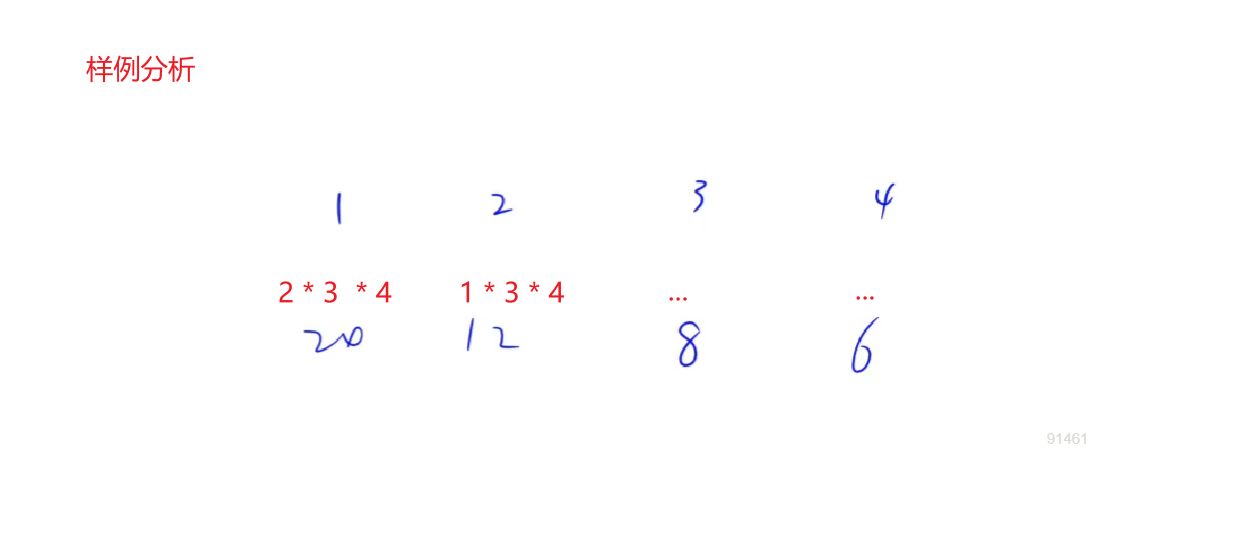 样例分析
1 2 3 4
2 * 3 * 4 1 * 3 * 4 ... ...
20 12 8 6
91461